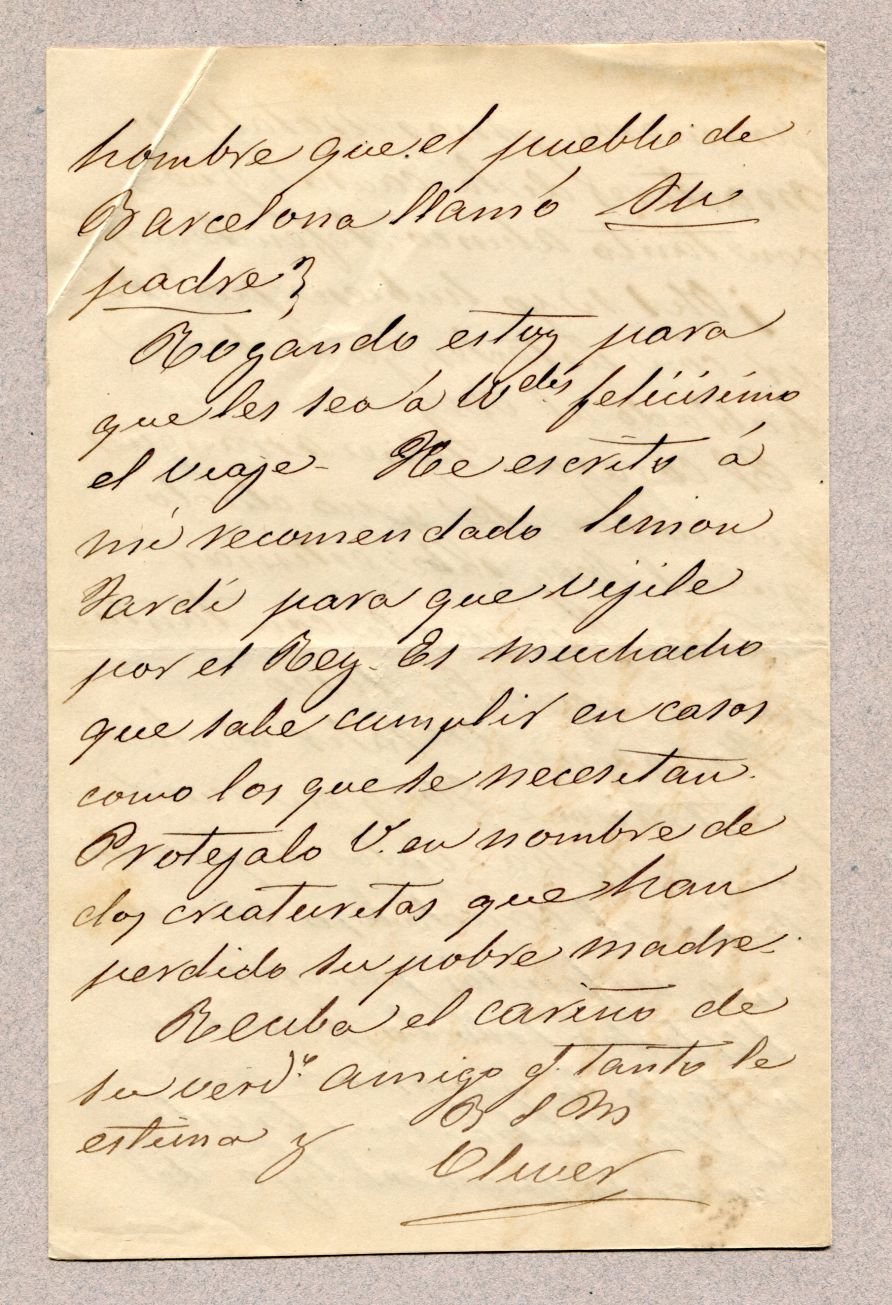 hombre que el pueblo de
Barcelona llamó su
padre?
Rogando estoy para
que les sea á Vdes felicísimo
el viaje - He escrito á
mi recomendado Simon
Jardí para que vijile
por el Rey. Es muchacho
que sabe cumplir en casos
como los que se necesitan.
Protejalo V. en nombre de
dos criaturitas que han
perdido su pobre madre.
Reciba el cariño de
su verdo amigo q. tanto le
estima y B S M
Oliver